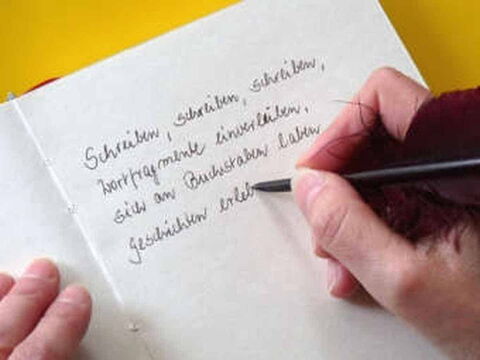 Schreiben, schreiben, schreiben,
Wortfragmente einverleiben,
sich an Buchstaben laben
geschichten erleb